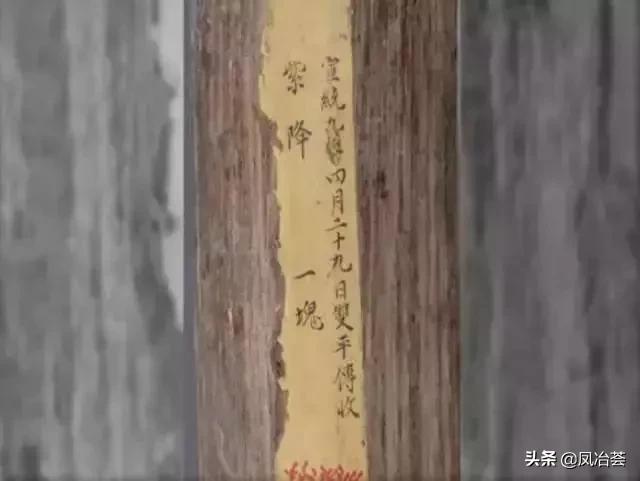 宣統九年四月二十九日雙平傳收
紫降 一塊
头条 @凤冶荟